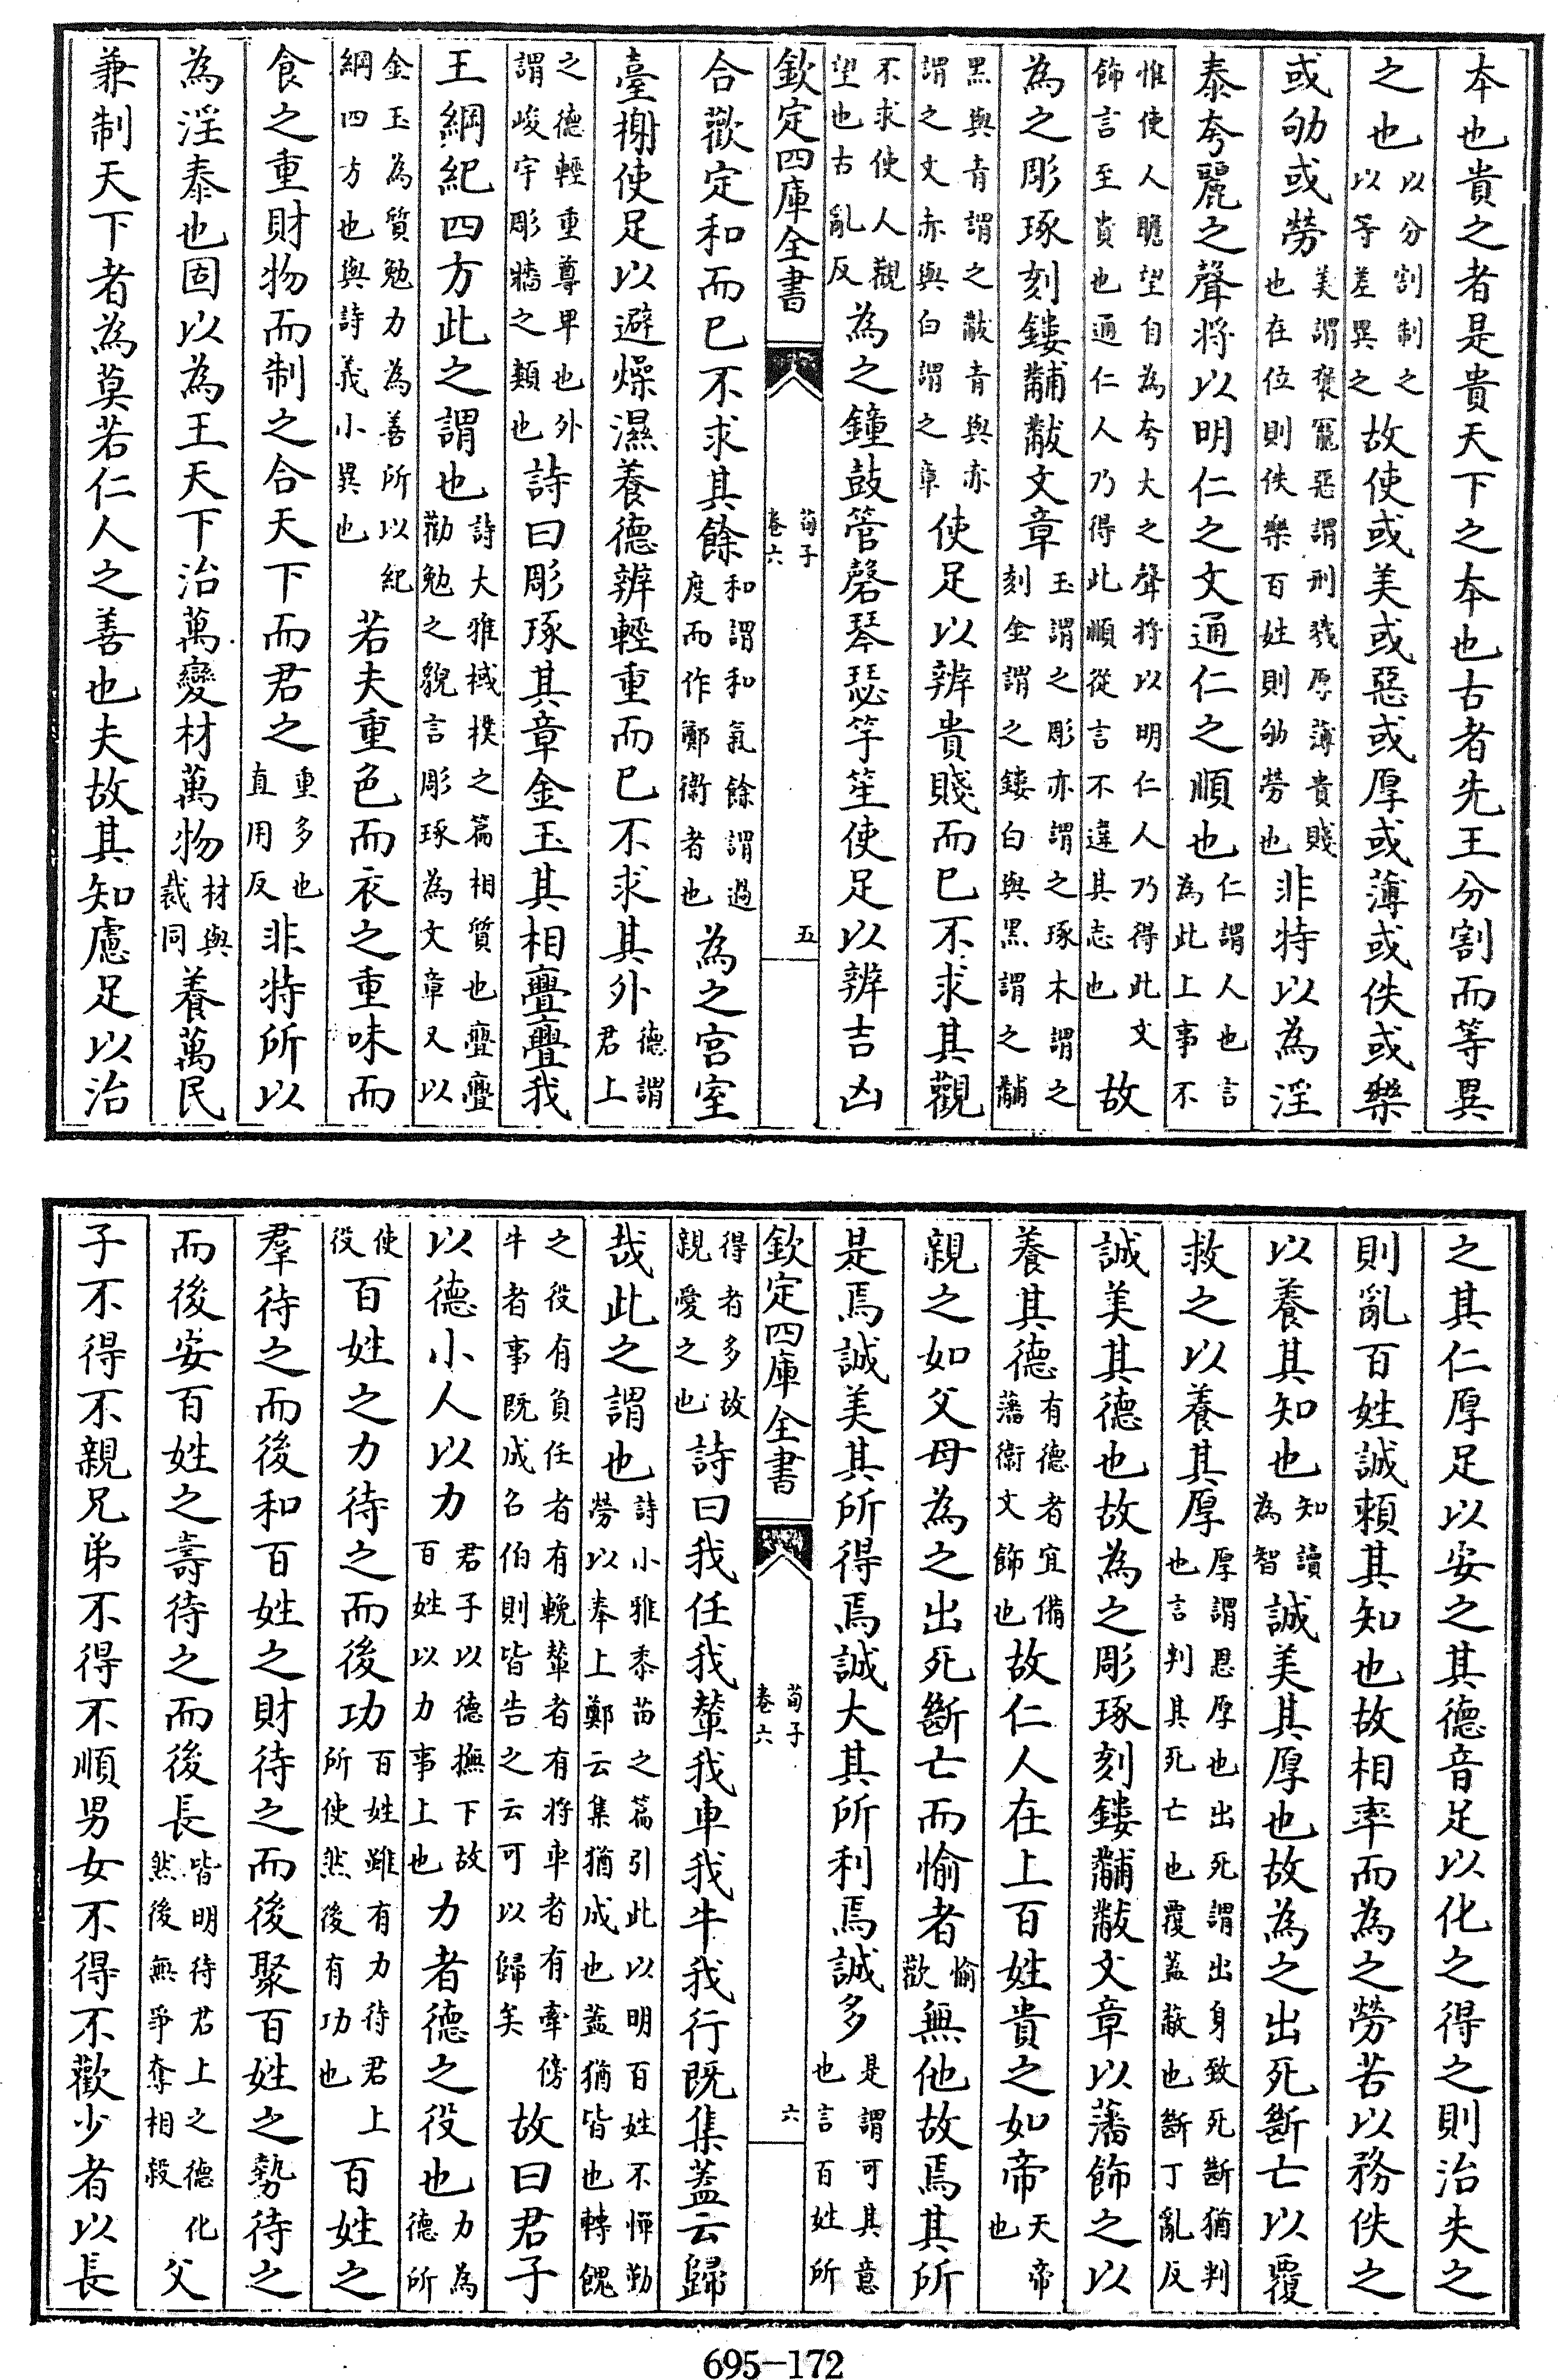 本也貴之者是貴天下之本也古者先王分割而等異
之也以分割制之以等差異之故使或美或惡或厚或薄或佚或樂
或劬或勞美謂褒寵惡謂刑戮厚薄貴賤也在位則佚樂百姓則劬勞也非特以為淫
泰夸麗之聲將以明仁之文通仁之順也仁謂人也言為此上事不
惟使人瞻望自為夸大之聲將以明仁人乃得此文飾言至貴也通仁人乃得此順從言不違其志也故
為之彫琢刻鏤黼黻文章玉謂之彫亦謂之琢木謂之刻金謂之鏤白與黑謂之黼
黑與青謂之黻青與赤謂之文赤與白謂之章使足以辨貴賤而已不求其觀
不求使人觀望也古亂反為之鐘鼓管磬琴瑟竽笙使足以辨吉凶
欽定四庫全書 荀子卷六 五
合歡定和而已不求其餘和謂和氣餘謂過度而作鄭衛者也為之宮室
臺榭使足以避燥濕養德辨輕重而已不求其外德謂君上
之德輕重尊卑也外謂峻宇彫牆之類也詩曰彫琢其章金玉其相亹亹我
王綱紀四方此之謂也詩大雅棫樸之篇相質也亹亹勸勉之貌言彫琢為文章又以
金玉為質勉力為善所以紀綱四方也與詩義小異也若夫重色而衣之重味而
食之重財物而制之合天下而君之重多也直用反非特所以
為淫泰也固以為王天下治萬變材萬物材與裁同養萬民
兼制天下者為莫若仁人之善也夫故其知慮足以治
之其仁厚足以安之其德音足以化之得之則治失之
則亂百姓誠賴其知也故相率而為之勞苦以務佚之
以養其知也知讀為智誠美其厚也故為之出死斷亡以覆
救之以養其厚厚謂恩厚也出死謂出身致死斷猶判也言判其死亡也覆蓋蔽也斷丁亂反
誠美其德也故為之彫琢刻鏤黼黻文章以藩飾之以
養其德有德者宜備藩衛文飾也故仁人在上百姓貴之如帝天帝也
親之如父母為之出死斷亡而愉者愉歡無他故焉其所
是焉誠美其所得焉誠大其所利焉誠多是謂可其意也言百姓所
欽定四庫全書 荀子卷六 六
得者多故親愛之也詩曰我任我輦我車我牛我行既集蓋云歸
哉此之謂也詩小雅黍苗之篇引此以明百姓不憚勤勞以奉上鄭云集猶成也蓋猶皆也轉餽
之役有負任者有輓輦者有將車者有牽傍牛者事既成召伯則皆告之云可以歸矣故曰君子
以德小人以力君子以德撫下故百姓以力事上也力者德之役也力為德所
使役百姓之力待之而後功百姓雖有力待君上所使然後有功也百姓之
羣待之而後和百姓之財待之而後聚百姓之勢待之
而後安百姓之壽待之而後長皆明待君上之德化然後無爭奪相殺父
子不得不親兄弟不得不順男女不得不歡少者以長
695-172